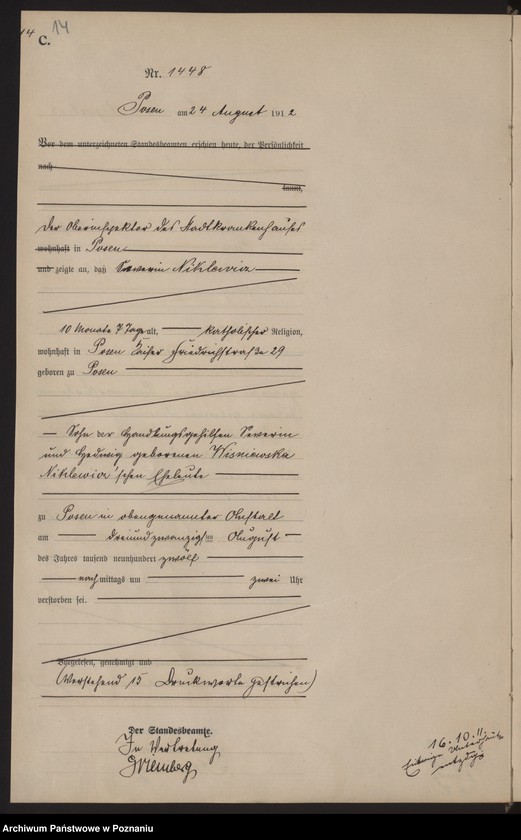 14
14
C.
Nr. 1448
Posen am 24 August 1912
Vor dem unterzeichneten Standesbeamten erschien heute, der Persönlichkeit
nach
kannt,
Der Oberinspektor des Stadtkrankenhauses
wohnhaft in Posen
und zeigte an, daß Severin Niklewicz
10 Monate 7 Tage alt, katholischer Religion,
wohnhaft in Posen Kaiser Friedrichstraße 29
geboren zu Posen
Sohn der Handlungsgehilfen Severin
und Hedwig geborenen Wisniewska
Niklewicz'schen Eheleute
zu Posen in obengenannter Anstalt
am dreiundzwanzigsten August
des Jahres tausend neunhundert zwölf
nachmittags um zwei Uhr
verstorben sei.
Vorgelesen, genehmigt und
(Vorstehend 15 Druckworte gestrichen)
Der Standesbeamte.
In Vertretung
16. 10. 11
Archiwum Państwowe w Poznaniu